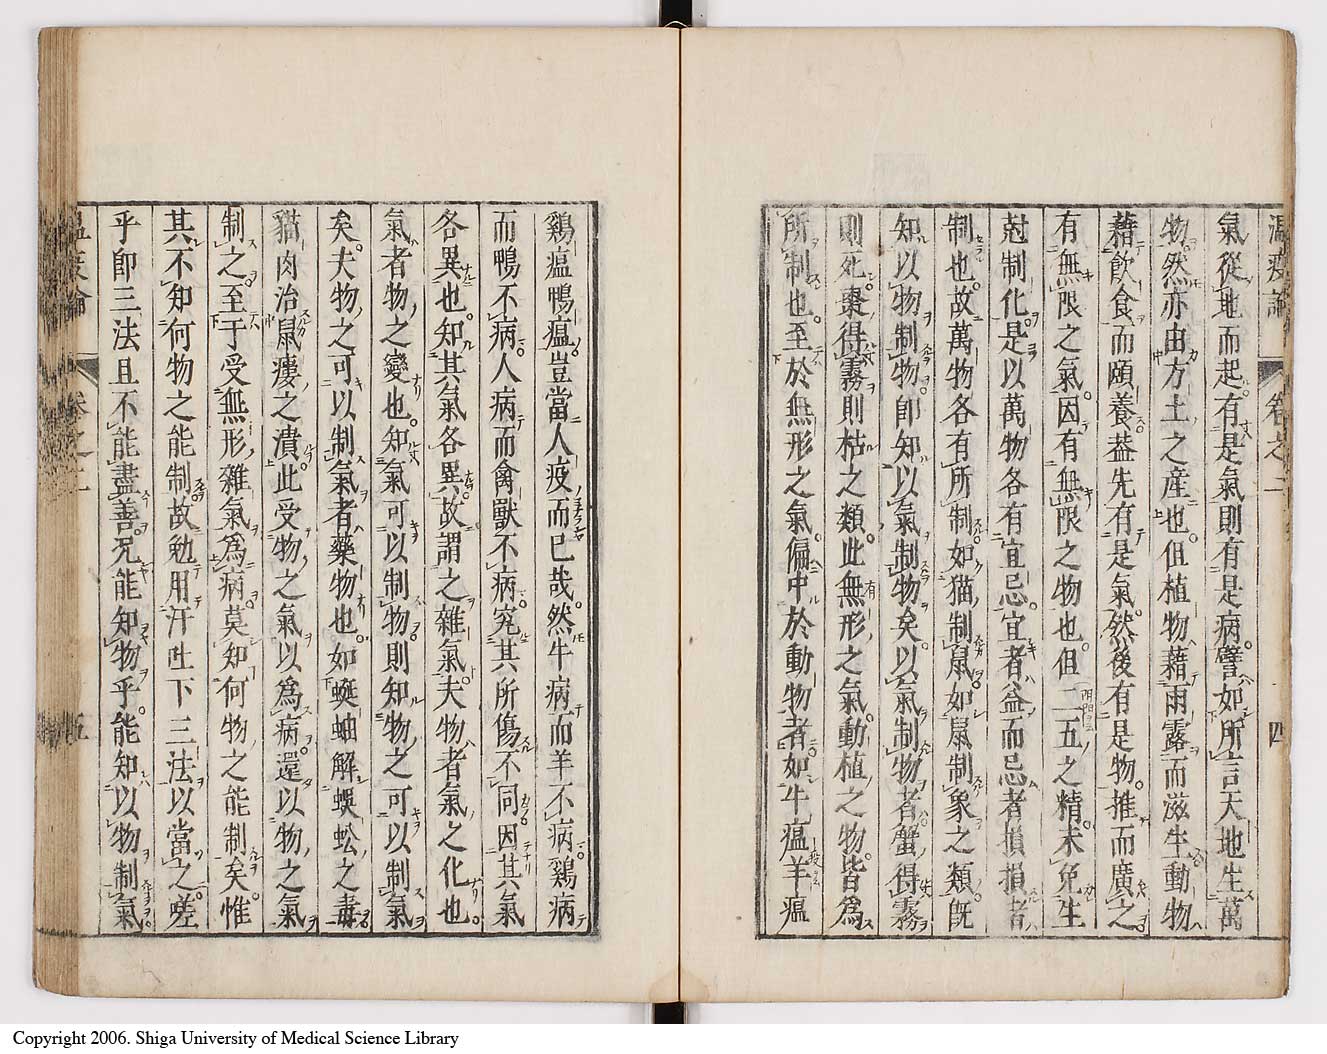 温疫論 卷之二 四
氣從地而起有是氣則有是病譬如所言天地生萬
物然亦由方土之産也但植物藉雨露而滋生動物
藉飲食而頤養葢先有是氣然後有是物推而廣之
有無限之氣因有無限之物也但二五之精未免生
尅制化是以萬物各有宜忌宜者益而忌者損損者
制也故萬物各有所制如猫制鼠如鼠制象之類既
知以物制物卽知以氣制物矣以氣制物者蟹得霧
則死棗得霧則枯之類此無形之氣動植之物皆爲
所制也至於無形之氣偏中於動物者如牛瘟羊瘟
鷄瘟鴨瘟豈當人疫而已哉然牛病而羊不病鷄病
而鴨不病人病而禽獸不病究其所傷不同因其氣
各異也知其氣各異故謂之雜氣夫物者氣之化也
氣者物之變也知氣可以制物則知物之可以制氣
矣夫物之可以制氣者藥物也如蜒蚰解蜈蚣之毒
貓肉治鼠瘻之潰此受物之氣以爲病還以物之氣
制之至于受無形雜氣爲病莫知何物之能制矣惟
其不知何物之能制故勉用汗吐下三法以當之嗟
乎卽三法且不能盡善況能知物乎能知以物制氣
溫疫論 卷之二 五
Copyright 2006. Shiga University of Medical Science Library